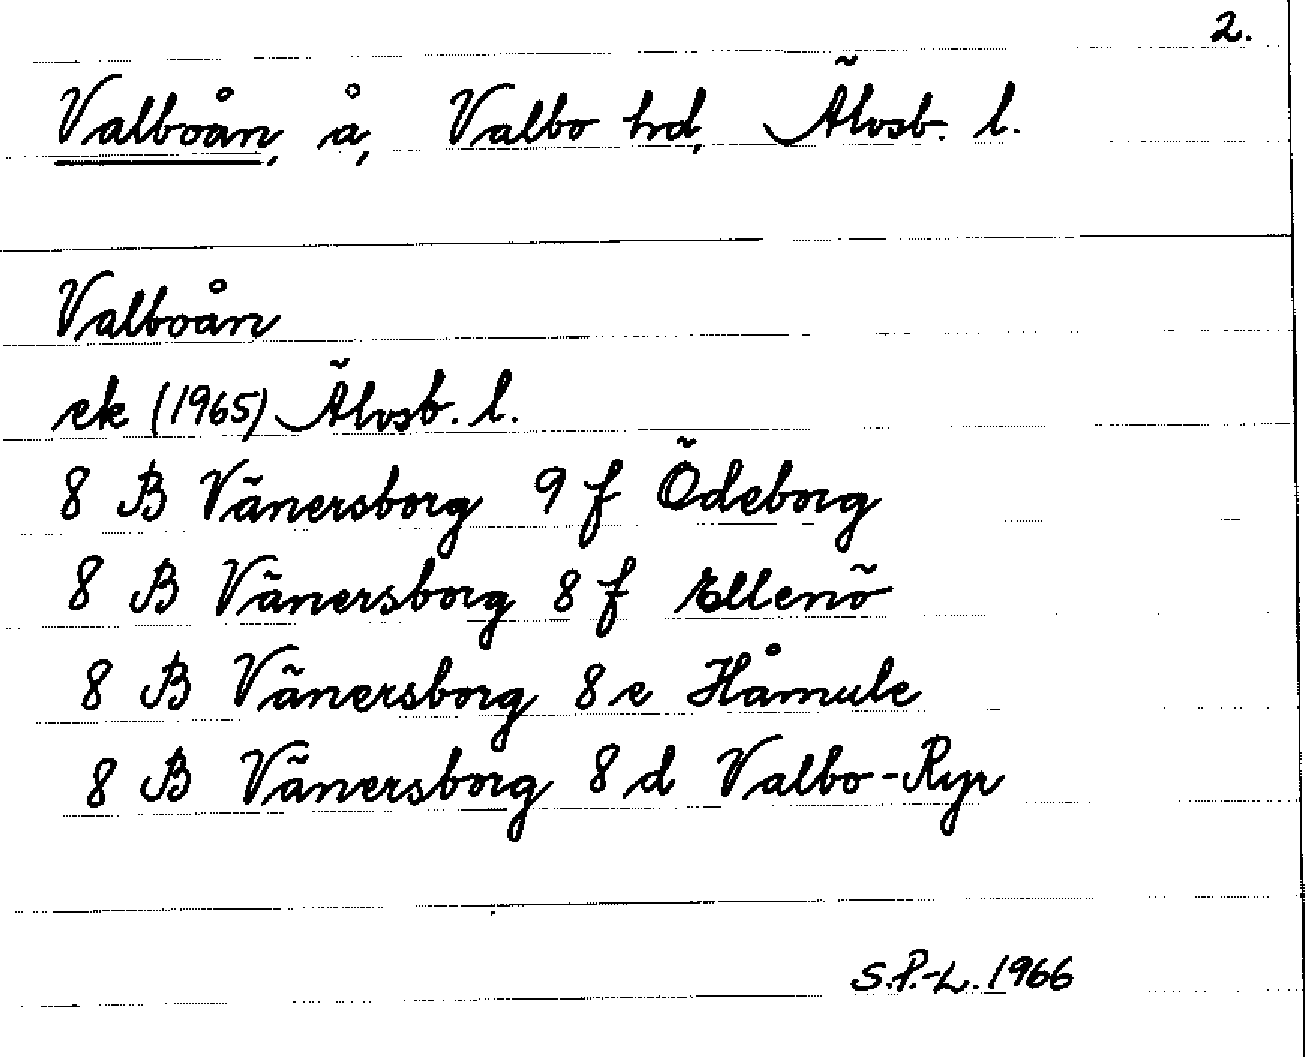 2.
Valboån, å, Valbo hrd, Älvsb. l.
Valboån
ek (1965) Älvsb. l.
8 B Vänersborg 9 f Ödeborg
8 B Vänersborg 8 f Ellenö
8 B Vänersborg 8 e Håmule
8 B Vänersborg 8 d Valbo-Ryr
S.P.-L. 1966